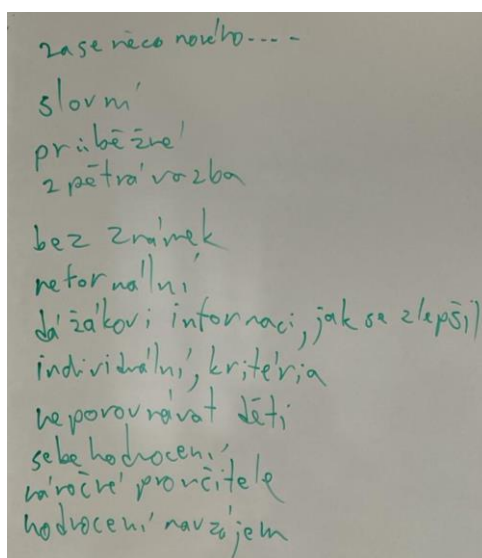 zase něco nového....
slovní
průběžné
zpětná vazba
bez známek
neformální
dá žákovi informaci, jak se zlepšil
individuální, kritéria
neporovnávat děti
sebehodnocení
náročné pro učitele
hodnocení navzájem